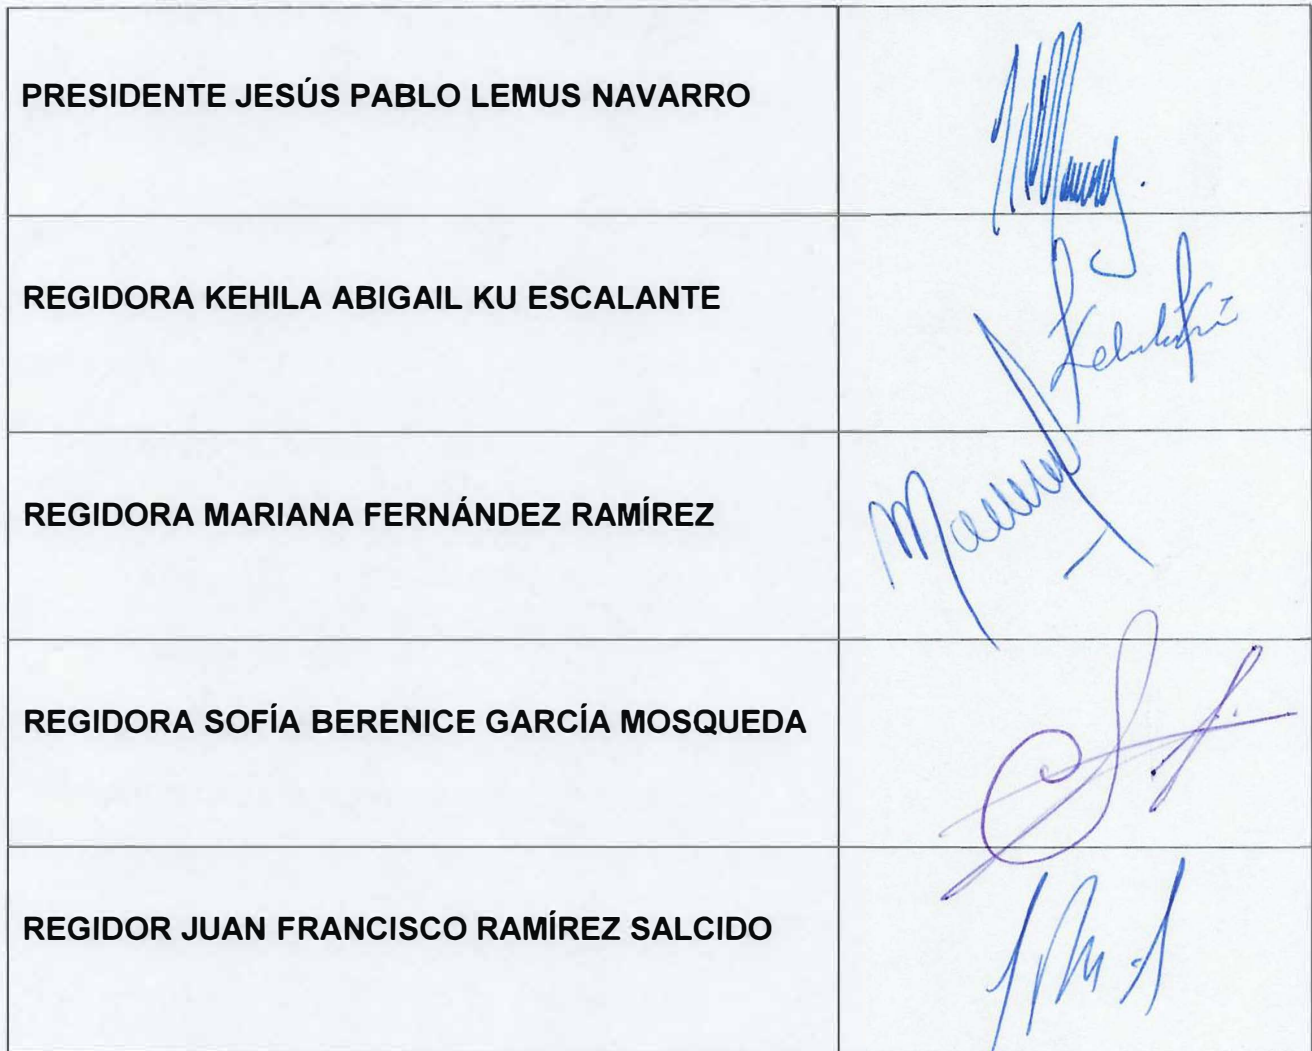 PRESIDENTE JESÚS PABLO LEMUS NAVARRO
REGIDORA KEHILA ABIGAIL KU ESCALANTE
REGIDORA MARIANA FERNÁNDEZ RAMÍREZ
REGIDORA SOFÍA BERENICE GARCÍA MOSQUEDA
REGIDOR JUAN FRANCISCO RAMÍREZ SALCIDO